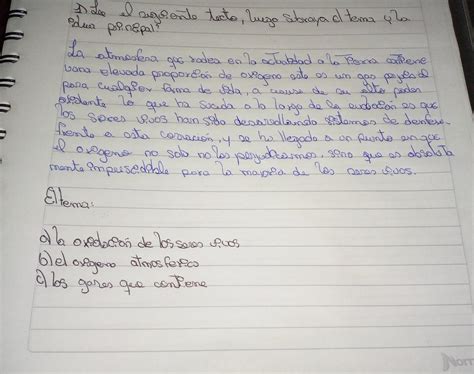 1) Lee el siguiente texto, luego subraya el tema y la
idea principal?
La atmosfera que rodea en la actualidad a la Tierra contiene
una elevada proporción de oxigeno esto es un gas
para cualquier forma de vida, a causa de su alto poder
oxidante lo que ha sucedido a lo largo de la evolución es que
los seres vivos han sido desarrollando sistemas de
frente a esta corrosión, y se ha llegado a un punto en que
el oxigeno no solo no los sino que es absoluta
mente imprescindible para la mayoria de los seres vivos.
El tema:
a) la oxidación de los seres vivos
b) el oxigeno atmosferico
c) los gases que contiene